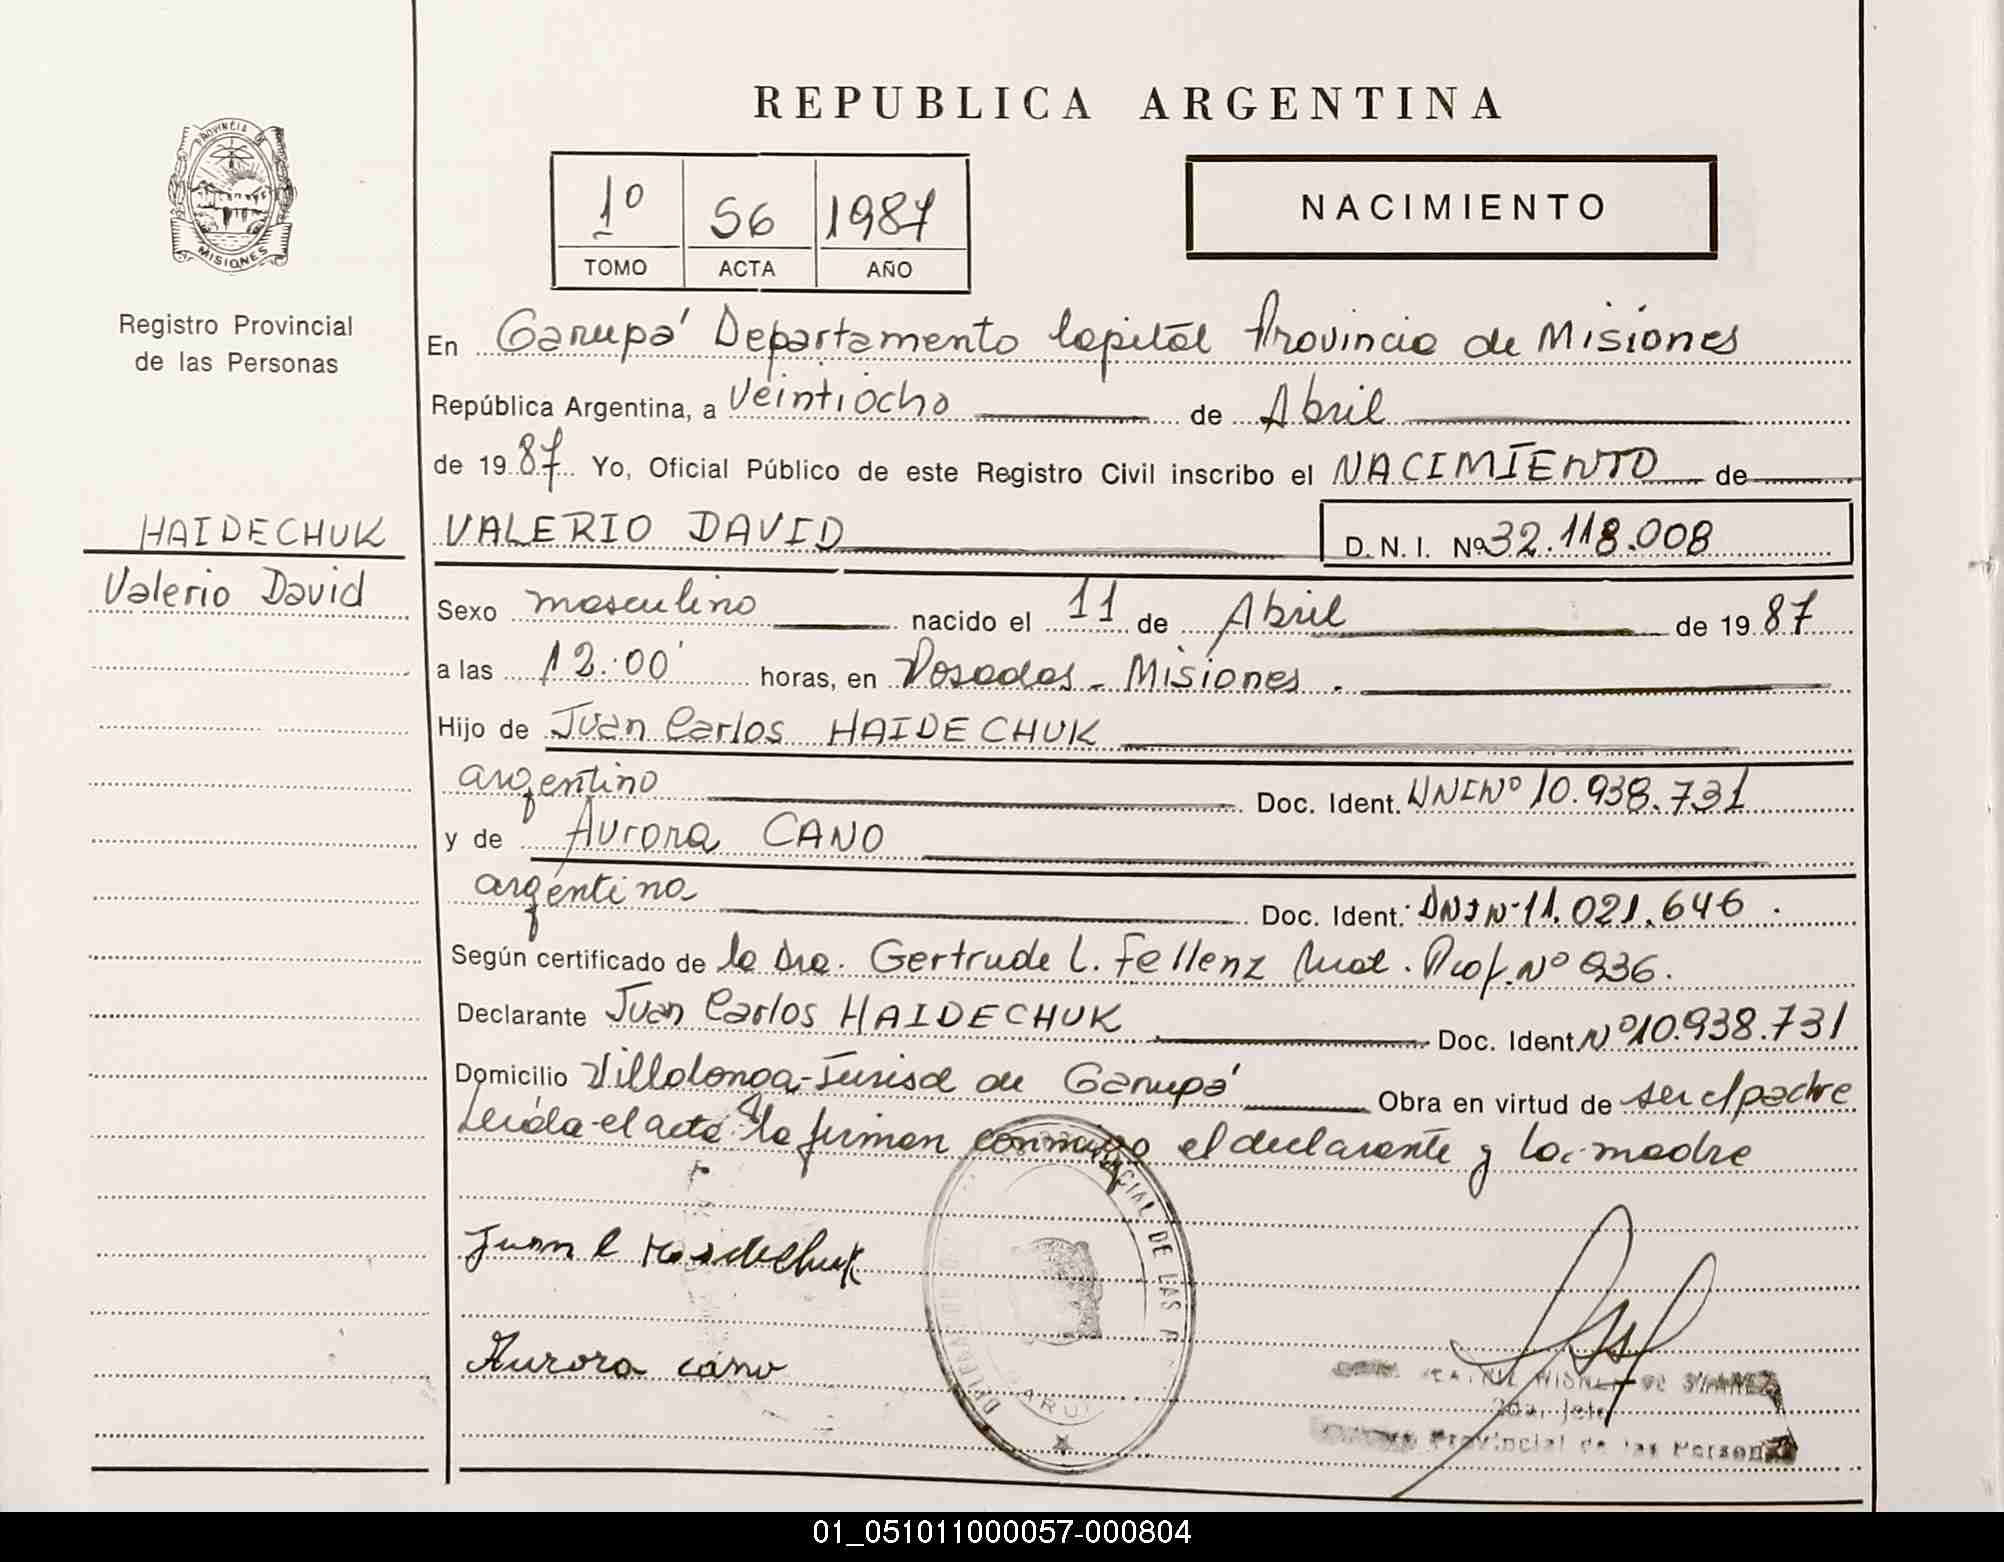 REPUBLICA ARGENTINA
PROVINCIA DE
MISIONES
Registro Provincial
de las Personas
1º 56 1987
TOMO ACTA AÑO
NACIMIENTO
En Garupá Departamento Capital Provincia de Misiones
República Argentina, a Veintiocho de Abril
de 1987 Yo, Oficial Público de este Registro Civil inscribo el NACIMIENTO de
HAIDECHUK VALERIO DAVID D. N. I. Nº 32.118.008
Valerio David
Sexo masculino nacido el 11 de Abril de 1987
a las 12:00' horas, en Posadas - Misiones.
Hijo de Juan Carlos HAIDECHUK
argentino Doc. Ident. DNI Nº 10.938.731
y de Aurora CANO
argentina Doc. Ident. DNI Nº 11.021.646.
Según certificado de la Dra. Gertrude L. Fellenz Mat. Prof. Nº 936.
Declarante Juan Carlos HAIDECHUK Doc. Ident Nº 10.938.731
Domicilio Villalonga-Jurisd de Garupá Obra en virtud de ser el padre
Leída el acta la firman conmigo el declarante y la madre
Juan C Haidechuk
Aurora cano
CIAL DE LAS P
2da. Jefe
Provincial de las Person
01_051011000057-000804